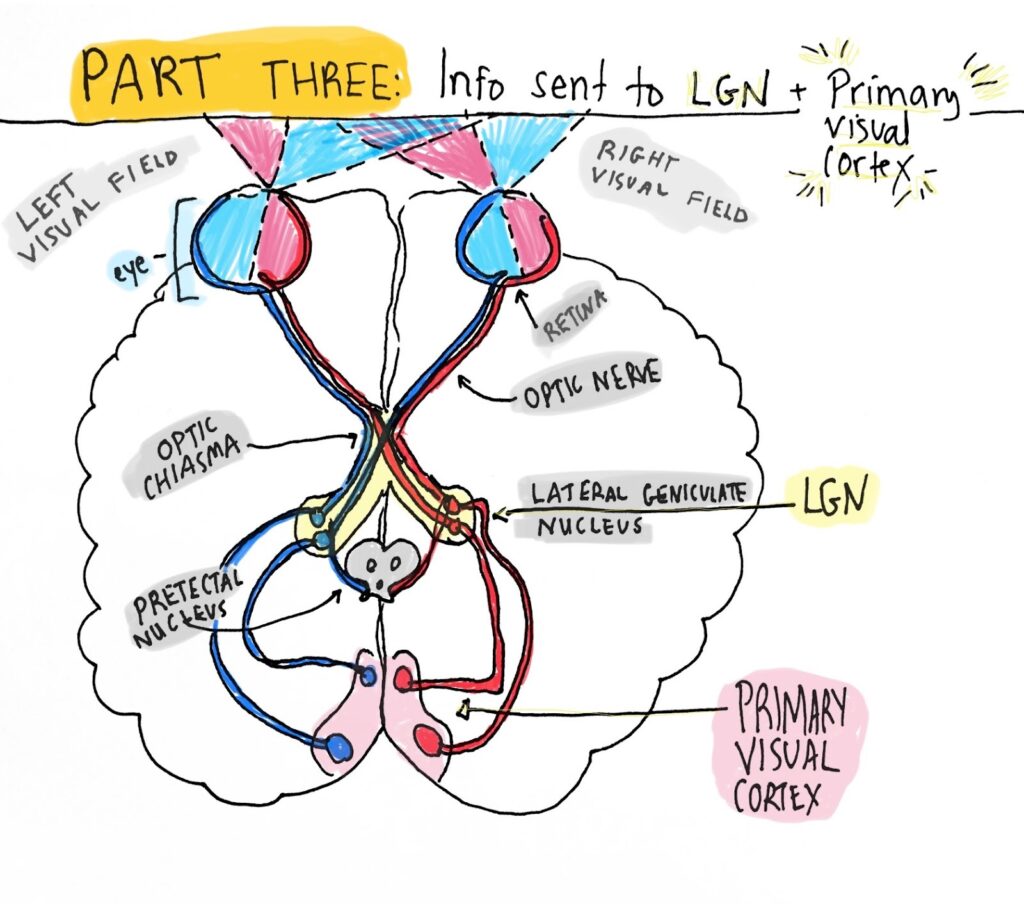 PART THREE: Info sent to LGN + Primary
visual
cortex
LEFT
VISUAL FIELD
RIGHT
VISUAL FIELD
eye
RETINA
OPTIC NERVE
OPTIC
CHIASMA
LATERAL GENICULATE
NUCLEUS
LGN
PRETECTAL
NUCLEUS
PRIMARY
VISUAL
CORTEX